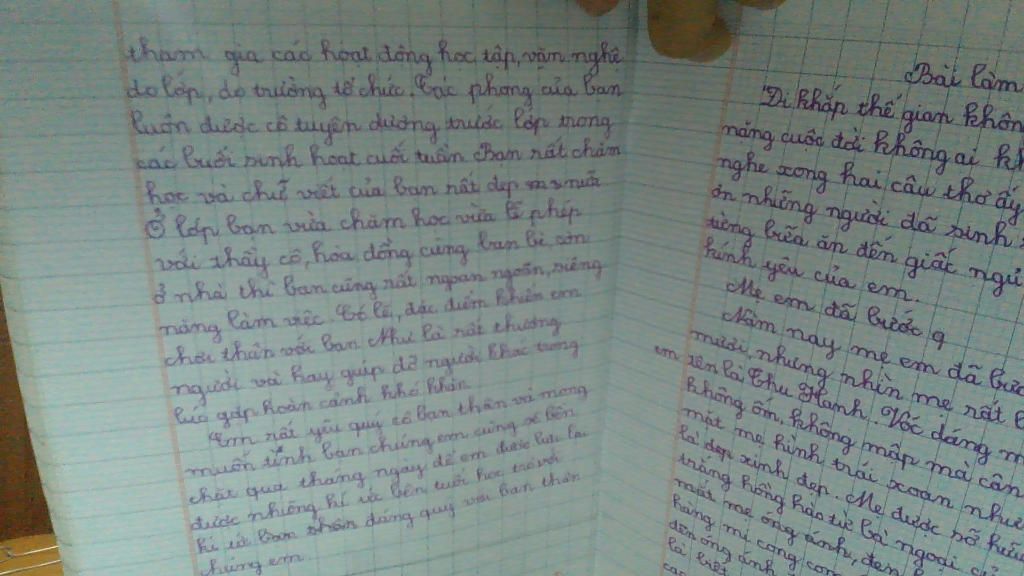 tham gia các hoạt động học tập, văn nghệ
do lớp, do trường tổ chức. Tác phong của bạn
luôn được cô tuyên dương trước lớp trong
các buổi sinh hoạt cuối tuần. Bạn rất chăm
học và chữ viết của bạn rất đẹp nữa
Ở lớp bạn vừa chăm học vừa lễ phép
với thầy cô, hòa đồng cùng bạn bè, còn
ở nhà thì bạn cũng rất ngoan ngoãn, siêng
năng làm việc. Có lẽ, đặc điểm khiến em
chơi thân với bạn Như là rất thương
người và hay giúp đỡ người khác trong
lúc gặp hoàn cảnh khó khăn.
Em rất yêu quý cô bạn thân và mong
muốn tình bạn chúng em cũng sẽ bền
chặt qua tháng ngày để em được lưu lại
được những kí ức bên tuổi học trò với
kí ức đáng quý với bạn thân
chúng em.
Bài làm
"Đi khắp thế gian khôn
nặng cuộc đời không ai kh
nghe xong hai câu thơ ấy
ơn những người đã sinh
từng bữa ăn đến giấc ngủ
kính yêu của em.
Mẹ em đã bước q
Năm nay mẹ em đã bướ
mươi, nhưng nhìn mẹ rất
em tên là Thu Hạnh. Vóc dáng m
không ốm, không mập mà cân
mặt mẹ hình trái xoan như
là đẹp xinh đẹp. Mẹ được sở hữu
trắng hồng hào từ bà ngoại củ
mắt mẹ óng ánh, đen
hàng mi cong con
đen óng ánh
là biết